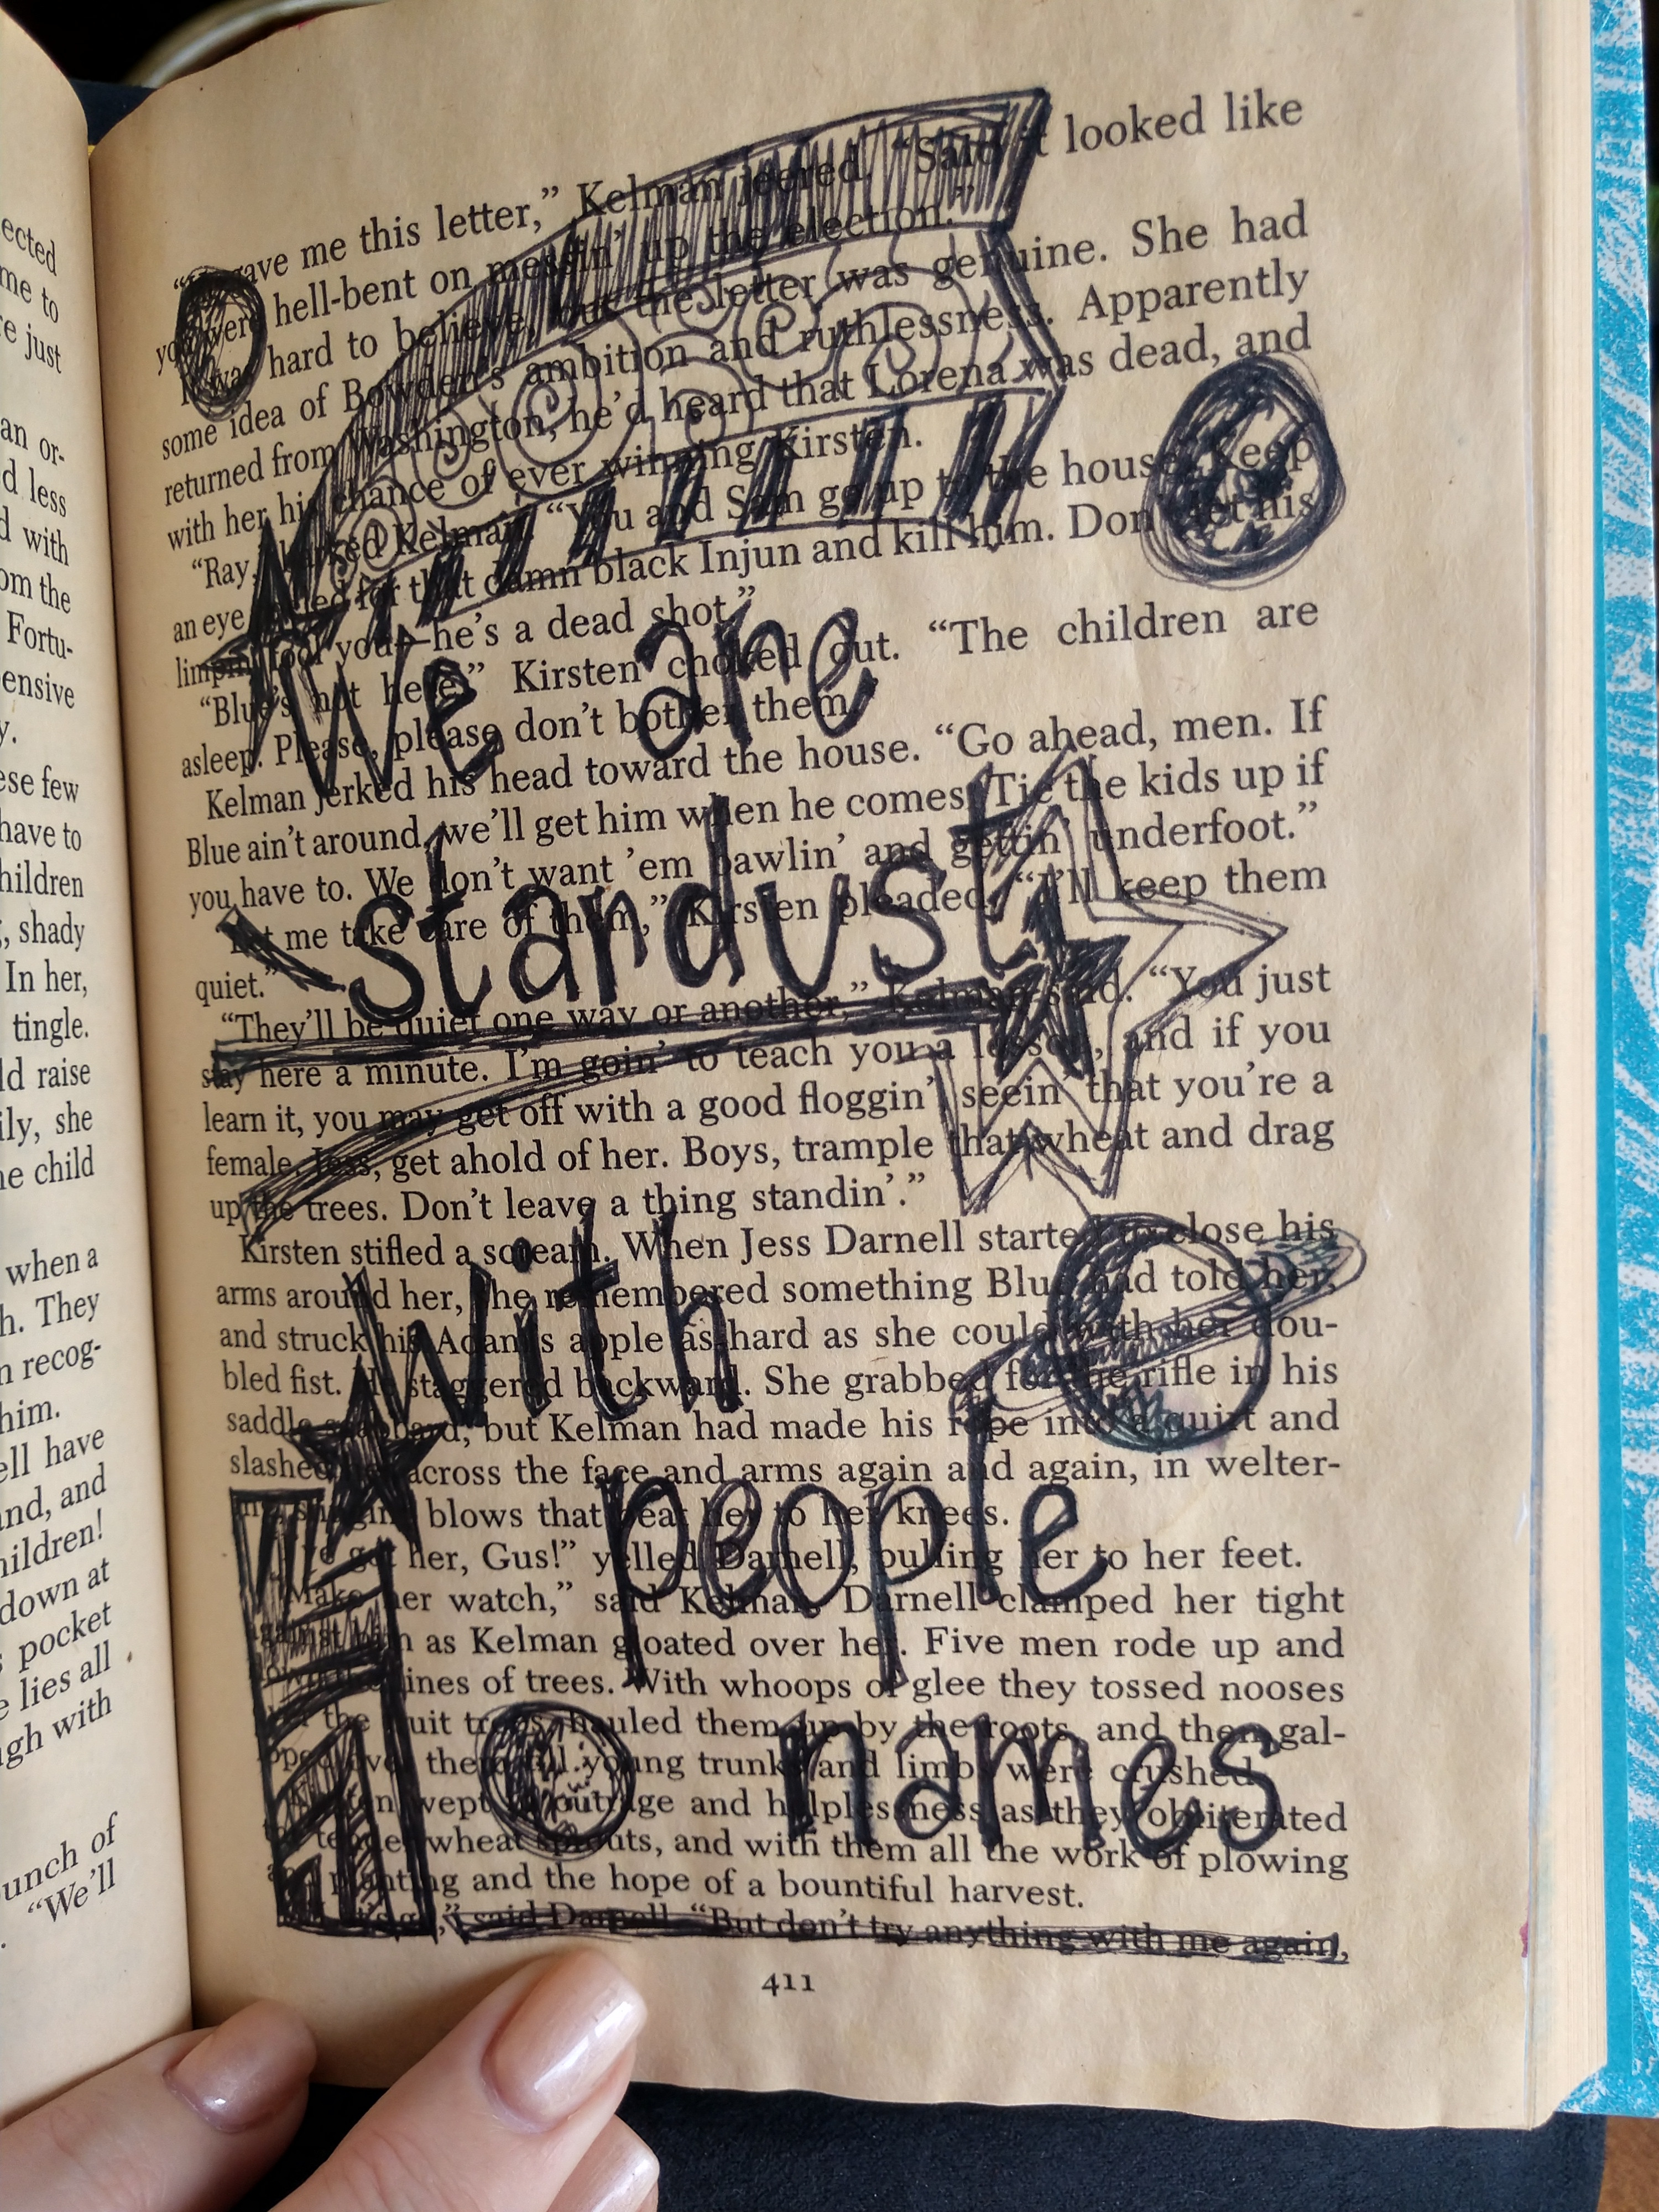 ected
me to
re just
an or-
d less
d with
om the
Fortu-
ensive
y.
ese few
have to
hildren
, shady
In her,
tingle.
ld raise
ily, she
e child
when a
h. They
n recog-
him.
ell have
and, and
hildren!
down at
pocket
e lies all
gh with
unch of
“We’ll
gave me this letter,” Kelman jeered. “Said it looked like
you were hell-bent on messin’ up the election.”
It was hard to believe, but the letter was genuine. She had
some idea of Bowden’s ambition and ruthlessness. Apparently
returned from Washington, he’d heard that Lorena was dead, and
with her his chance of ever winning Kirsten.
“Ray,” barked Kelman. “You and Sam go up to the house. Keep
an eye peeled for that damn black Injun and kill him. Don’t let his
limpin’ fool you—he’s a dead shot.”
“Blue’s not here,” Kirsten choked out. “The children are
asleep. Please, please don’t bother them.”
Kelman jerked his head toward the house. “Go ahead, men. If
Blue ain’t around, we’ll get him when he comes. Tie the kids up if
you have to. We don’t want ’em bawlin’ and gettin’ underfoot.”
“Let me take care of them,” Kirsten pleaded. “I’ll keep them
quiet.”
“They’ll be quiet one way or another,” Kelman said. “You just
stay here a minute. I’m goin’ to teach you a lesson, and if you
learn it, you may get off with a good floggin’, seein’ that you’re a
female. Jess, get ahold of her. Boys, trample that wheat and drag
up the trees. Don’t leave a thing standin’.”
Kirsten stifled a scream. When Jess Darnell started to close his
arms around her, she remembered something Blue had told her,
and struck his Adam’s apple as hard as she could with her dou-
bled fist. He staggered backward. She grabbed for the rifle in his
saddle scabbard, but Kelman had made his rope into a quirt and
slashed her across the face and arms again and again, in welter-
ing, stinging blows that beat her to her knees.
“I’ve got her, Gus!” yelled Darnell, pulling her to her feet.
“Make her watch,” said Kelman. Darnell clamped her tight
against him as Kelman gloated over her. Five men rode up and
down the lines of trees. With whoops of glee they tossed nooses
the fruit trees, hauled them up by the roots, and then gal-
loped over them till young trunks and limbs were crushed.
Kirsten wept in outrage and helplessness as they obliterated
the tender wheat sprouts, and with them all the work of plowing
and planting and the hope of a bountiful harvest.
said Darnell. “But don’t try anything with me again,
411
We are
stardust
with
people
names